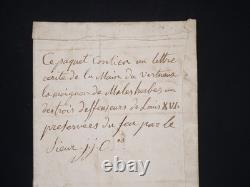 Ce paquet Contien un lettre
ecrite de la Main du vertueux
lamoignon de Malesherbes un
des trois deffenseurs de Louis XVI.
preserver du feu par le
Sieur j j C
© worthpoint.com